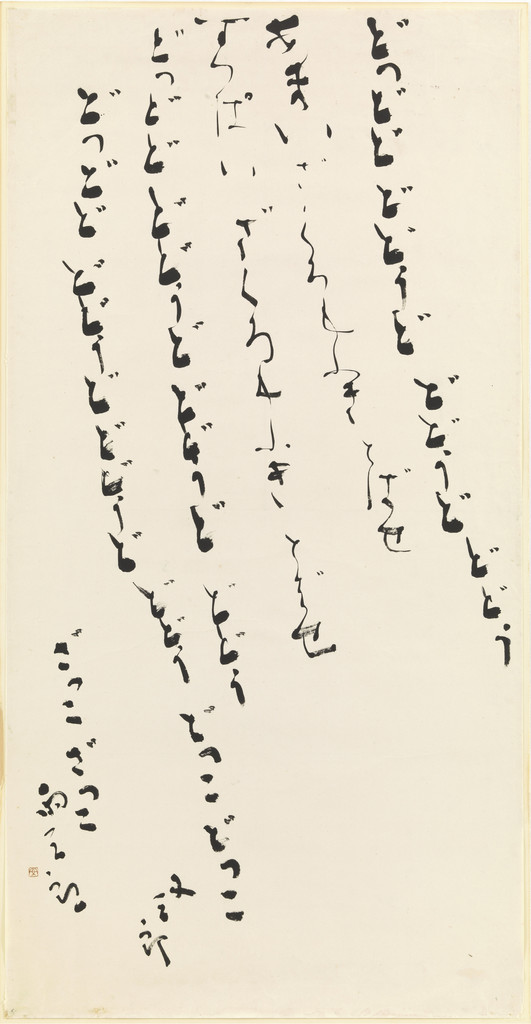 どつどど どどうど どどうど どどう
あまいざくろもふきとばせ
すつぱいざくろもふきとばせ
どつどど どどうど どどうど どどう
どつどど どどうど どどうど どどう
どつこどつこ
又三郎
ざつこざつこ
風三郎